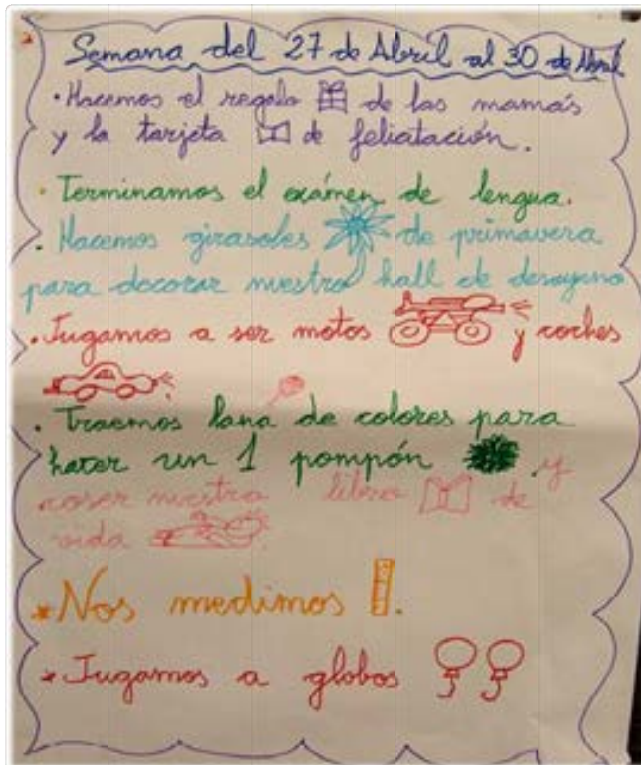 Semana del 27 de Abril al 30 de Abril
• Hacemos el regalo de las mamás
y la tarjeta de feliatación.
• Terminamos el exámen de lengua.
• Hacemos girasoles de primavera
para decorar nuestro hall de desayuno
• Jugamos a ser motos y coches
• Traemos lana de colores para
hacer un 1 pompón y
coser nuestro libro de
vida
* Nos medimos.
* Jugamos a globos